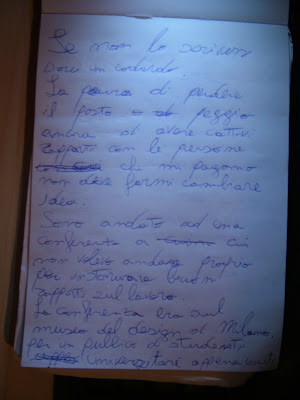 Se non lo scrivessi
sarei un codardo.
La paura di perdere
il posto o peggio
ancora di avere cattivi
rapporti con le persone
che mi pagano
non deve farmi cambiare
idea.
Sono andato ad una
conferenza a cui
non volevo andare proprio
per instaurare buoni
rapporti sul lavoro.
La conferenza era sul
museo del design di Milano.
per un pubblico di studenti
universitari appena usciti